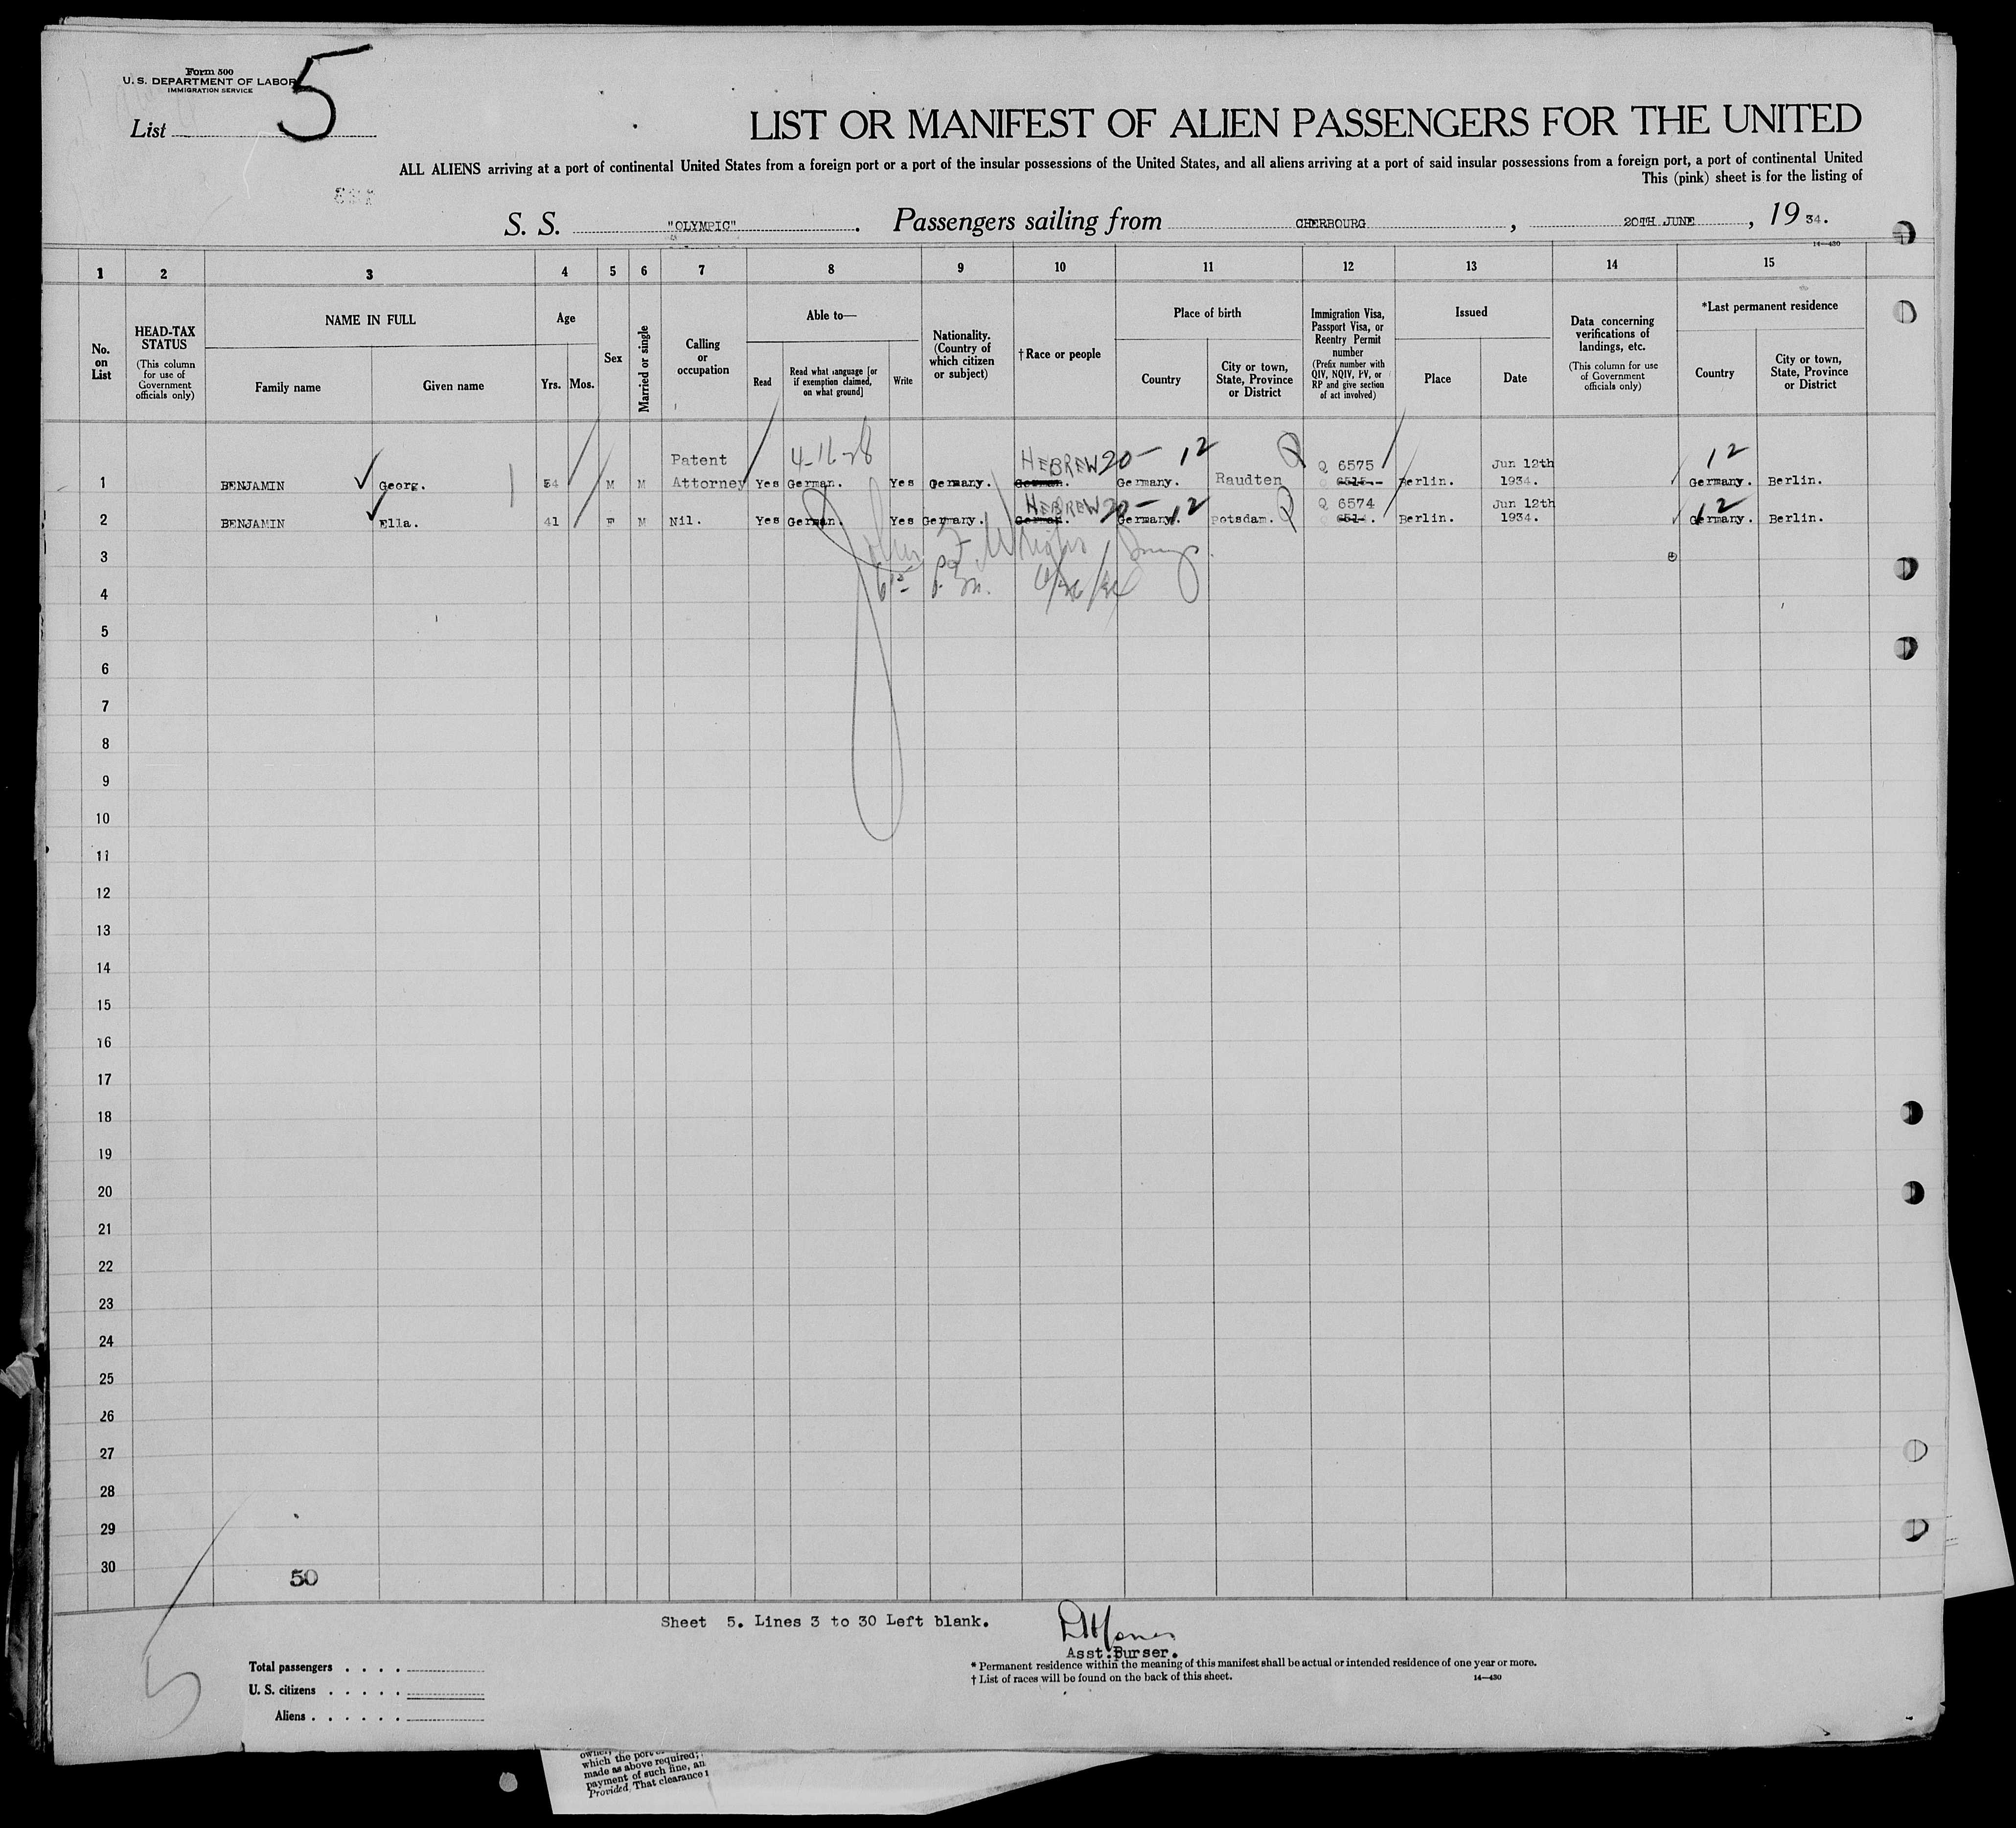 Form 500
U. S. DEPARTMENT OF LABOR
IMMIGRATION SERVICE
List 5
LIST OR MANIFEST OF ALIEN PASSENGERS FOR THE UNITED
ALL ALIENS arriving at a port of continental United States from a foreign port or a port of the insular possessions of the United States, and all aliens arriving at a port of said insular possessions from a foreign port, a port of continental United
This (pink) sheet is for the listing of
S. S. "OLYMPIC". Passengers sailing from CHERBOURG, 20TH JUNE, 19 34.
14—430
1 2 3 4 5 6 7 8 9 10 11 12 13 14 15
No. on List
HEAD-TAX STATUS
(This column for use of Government officials only)
NAME IN FULL
Family name
Given name
Age
Yrs. Mos.
Sex
Married or single
Calling or occupation
Able to—
Read
Read what language [or if exemption claimed, on what ground]
Write
Nationality. (Country of which citizen or subject)
†Race or people
Place of birth
Country
City or town, State, Province or District
Immigration Visa, Passport Visa, or Reentry Permit number
(Prefix number with QIV, NQIV, PV, or RP and give section of act involved)
Issued
Place
Date
Data concerning verifications of landings, etc.
(This column for use of Government officials only)
*Last permanent residence
Country
City or town, State, Province or District
Patent 4-16-28 HEBREW 20- 12 Q Q 6575 Jun 12th 12
1 BENJAMIN Georg. 54 M M Attorney Yes German. Yes Germany. German. Germany. Raudten 6515 Berlin. 1934. Germany. Berlin.
HEBREW 20- 12 Q Q 6574 Jun 12th 12
2 BENJAMIN Ella. 41 F M Nil. Yes German. Yes Germany. German. Germany. Potsdam. 6514. Berlin. 1934. Germany. Berlin.
3
4
5
6
7
8
9
10
11
12
13
14
15
16
17
18
19
20
21
22
23
24
25
26
27
28
29
30
50
Sheet 5. Lines 3 to 30 Left blank.
Asst. Purser.
5
Total passengers . . . .
U. S. citizens . . . . .
Aliens . . . . . .
* Permanent residence within the meaning of this manifest shall be actual or intended residence of one year or more.
† List of races will be found on the back of this sheet.
14—430
which the port
made as above required;
payment of such fine, an
Provided, That clearance